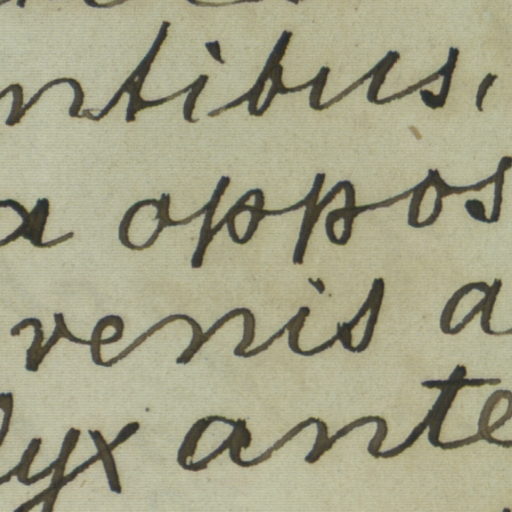 ntibus,
a oppos
venis a
lyx ante